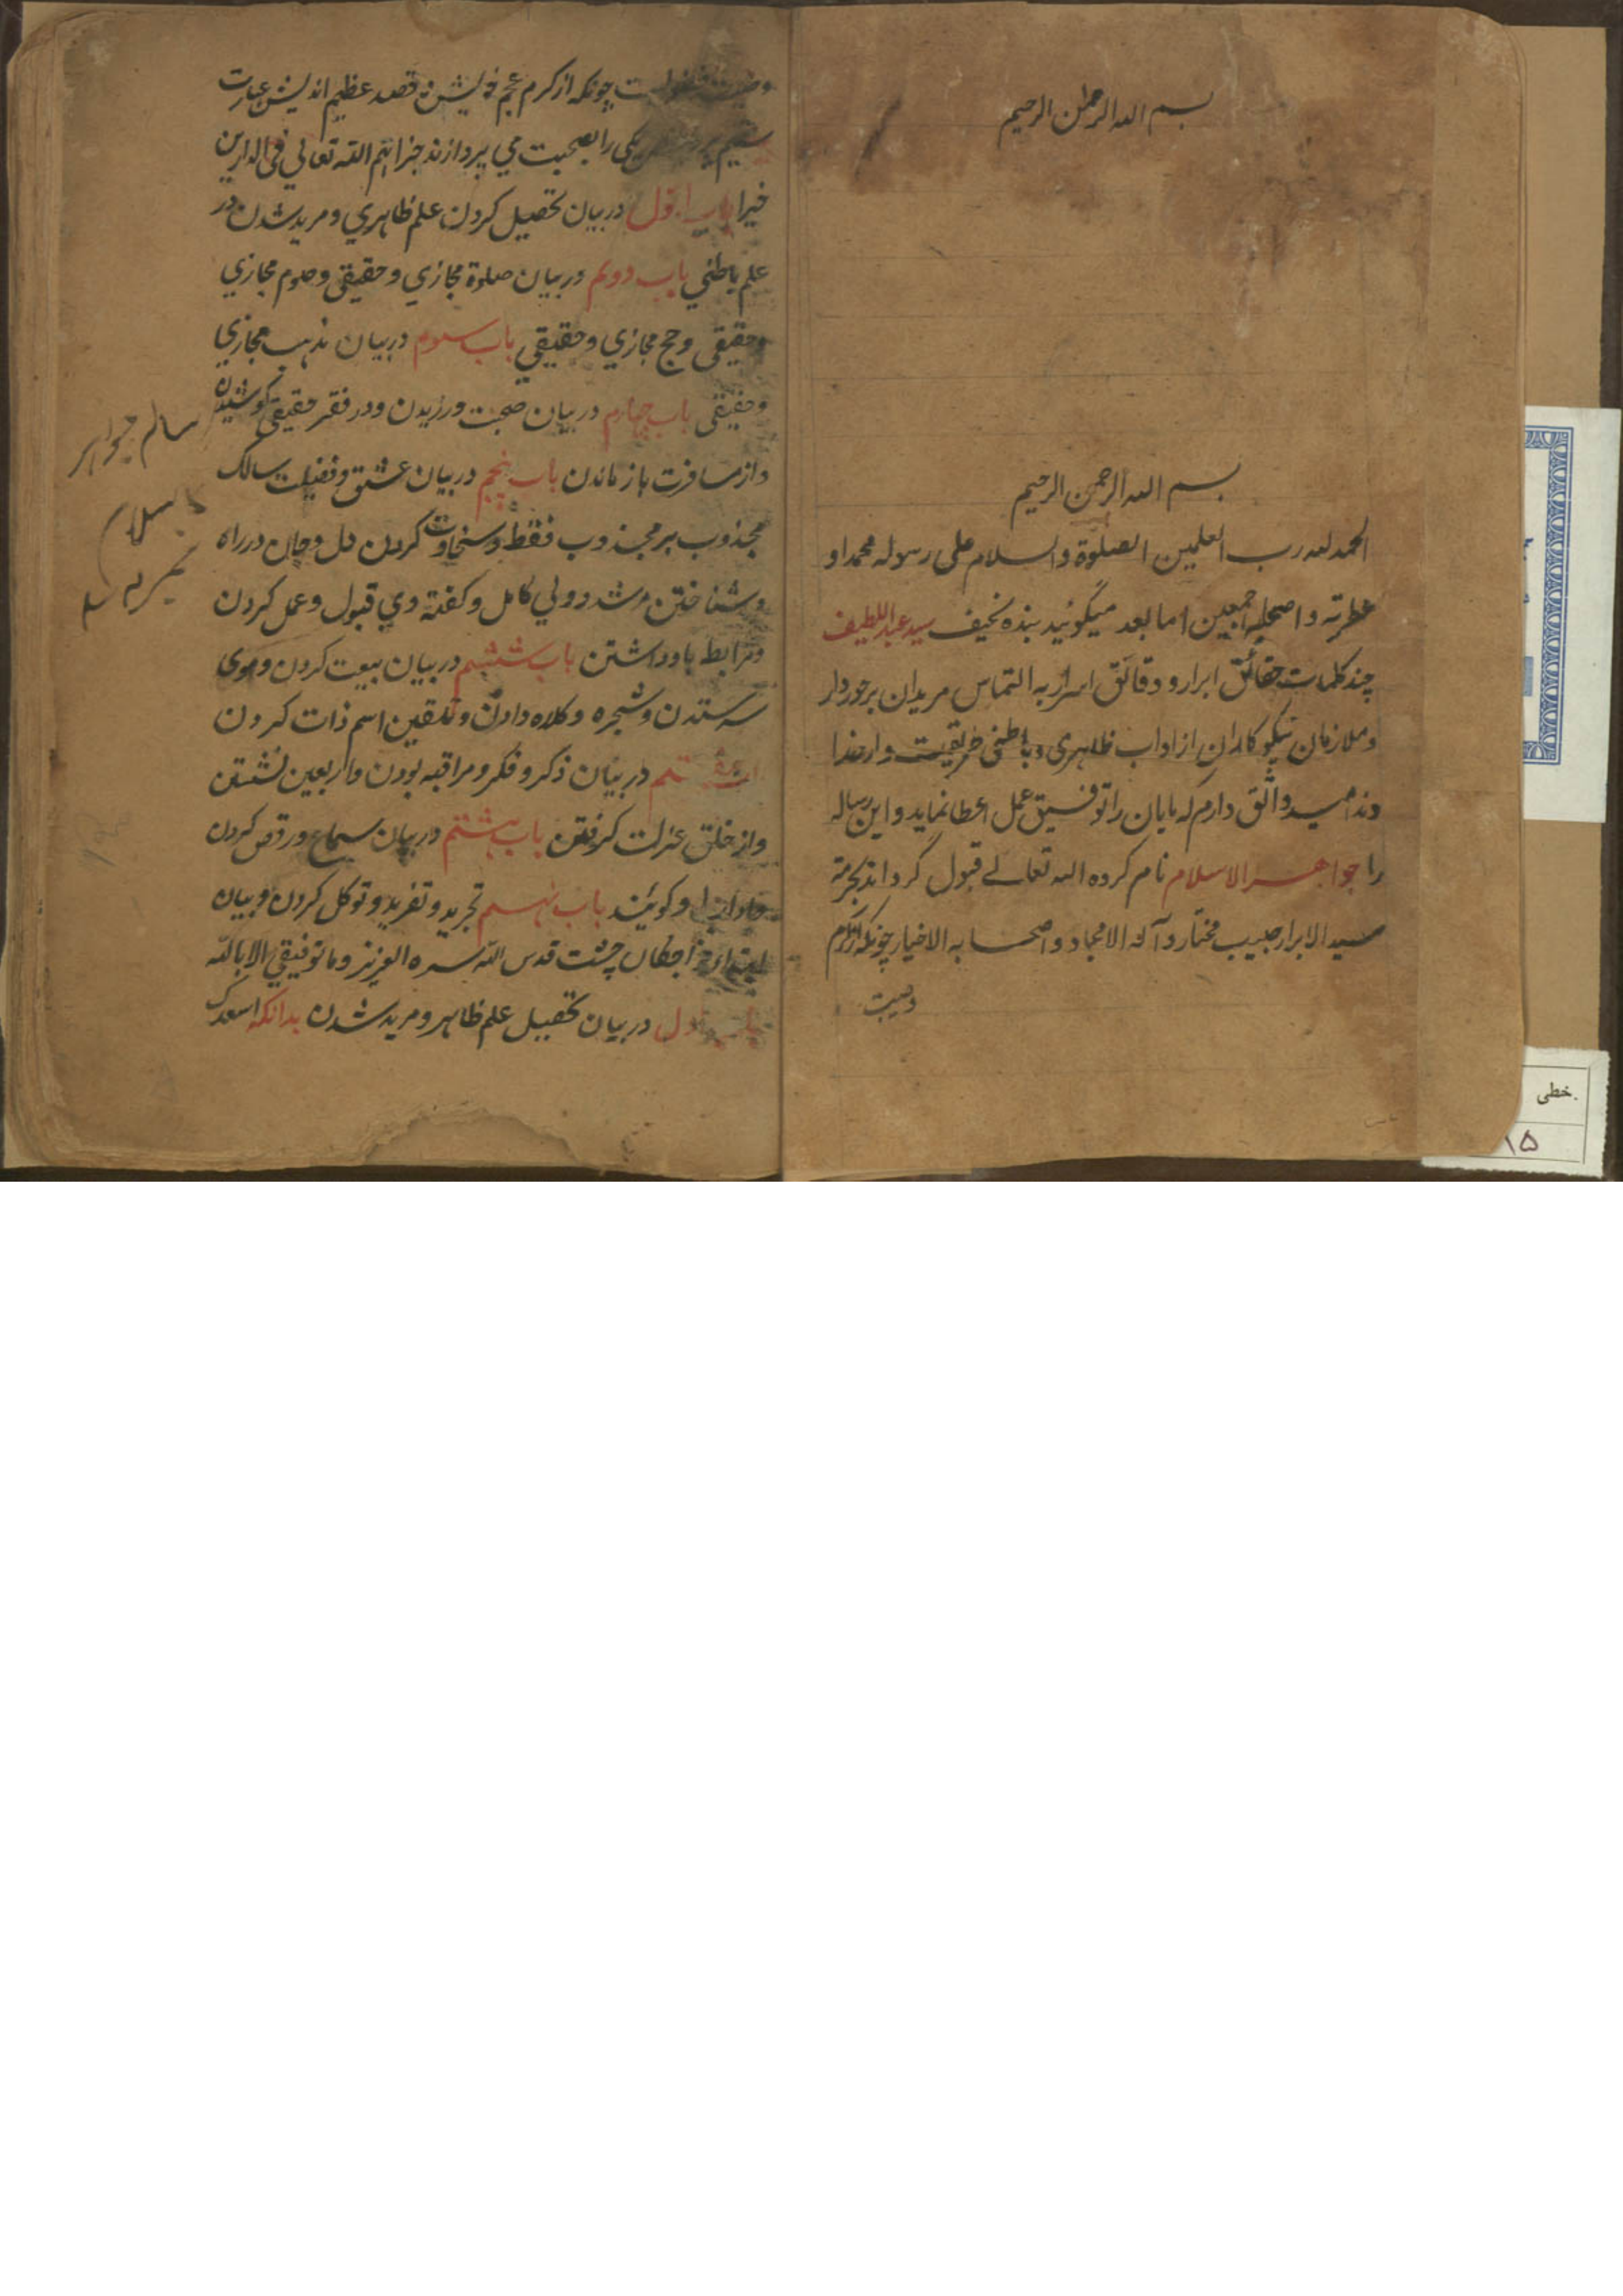 بسم الله الرحمن الرحیم
بسم الله الرحمن الرحیم
الحمد لله رب العلمین الصلوة والسلام علی رسوله محمد او
عطرته واصحابه اجمعین اما بعد میگوئید بنده نحیف سید عبد اللطیف
چند کلمات حقائق ابرار و دقائق اسرار به التماس مریدان برخوردار
و ملازمان نیکو کاران از اداب ظاهری و باطنی طریقت وار خدا
وند امید واثق دارم که مایان را توفیق عمل عطا نماید و این رساله
را جواهر الاسلام نام کرده الله تعالے قبول گرداند بحرمة
سید الابرار حبیب مختار و آله الامجاد و اصحابه الاخیار چونکه از کرم
چونکه از کرم عجم خویش قصد عظیم اندیش عبارت
را بصحبت می پردازند جزاهم الله تعالی فی الدارین
خیرا باب اول در بیان تحصیل کردن علم ظاهری و مرید شدن در
علم باطنی باب دویم در بیان صلوة مجازی و حقیقی و صوم مجازی
وحقیقی وحج مجازی وحقیقی باب سوم در بیان مذهب مجازی
وحقیقی باب چهارم در بیان صحبت ورزیدن ودر فقر حقیقی کوشیدن
واز مسافرت باز ماندن باب پنجم در بیان عشق و فضیلت سالک
مجذوب بر مجذوب فقط و سخاوت کردن دل و جان در راه
وشناختن مرشد و ولی کامل و کفته وی قبول و عمل کردن
ورابط با و داشتن باب ششم در بیان بیعت کردن و موی
سه ستدن و شجره و کلاه دادن و تلقین اسم ذات کردن
در بیان ذکر و فکر و مراقبه بودن و اربعین نشستن
واز خلق عزلت کرفتن باب هشتم در بیان سماع و رقص کردن
و کوئیند باب نهم تجرید و تفرید و توکل کردن و بیان
خواجکان چشت قدس الله سره العزیز وما توفیقی الا بالله
باب اول در بیان تحصیل علم ظاهر و مرید شدن بدانکه اسعدک
خطی
۱۵